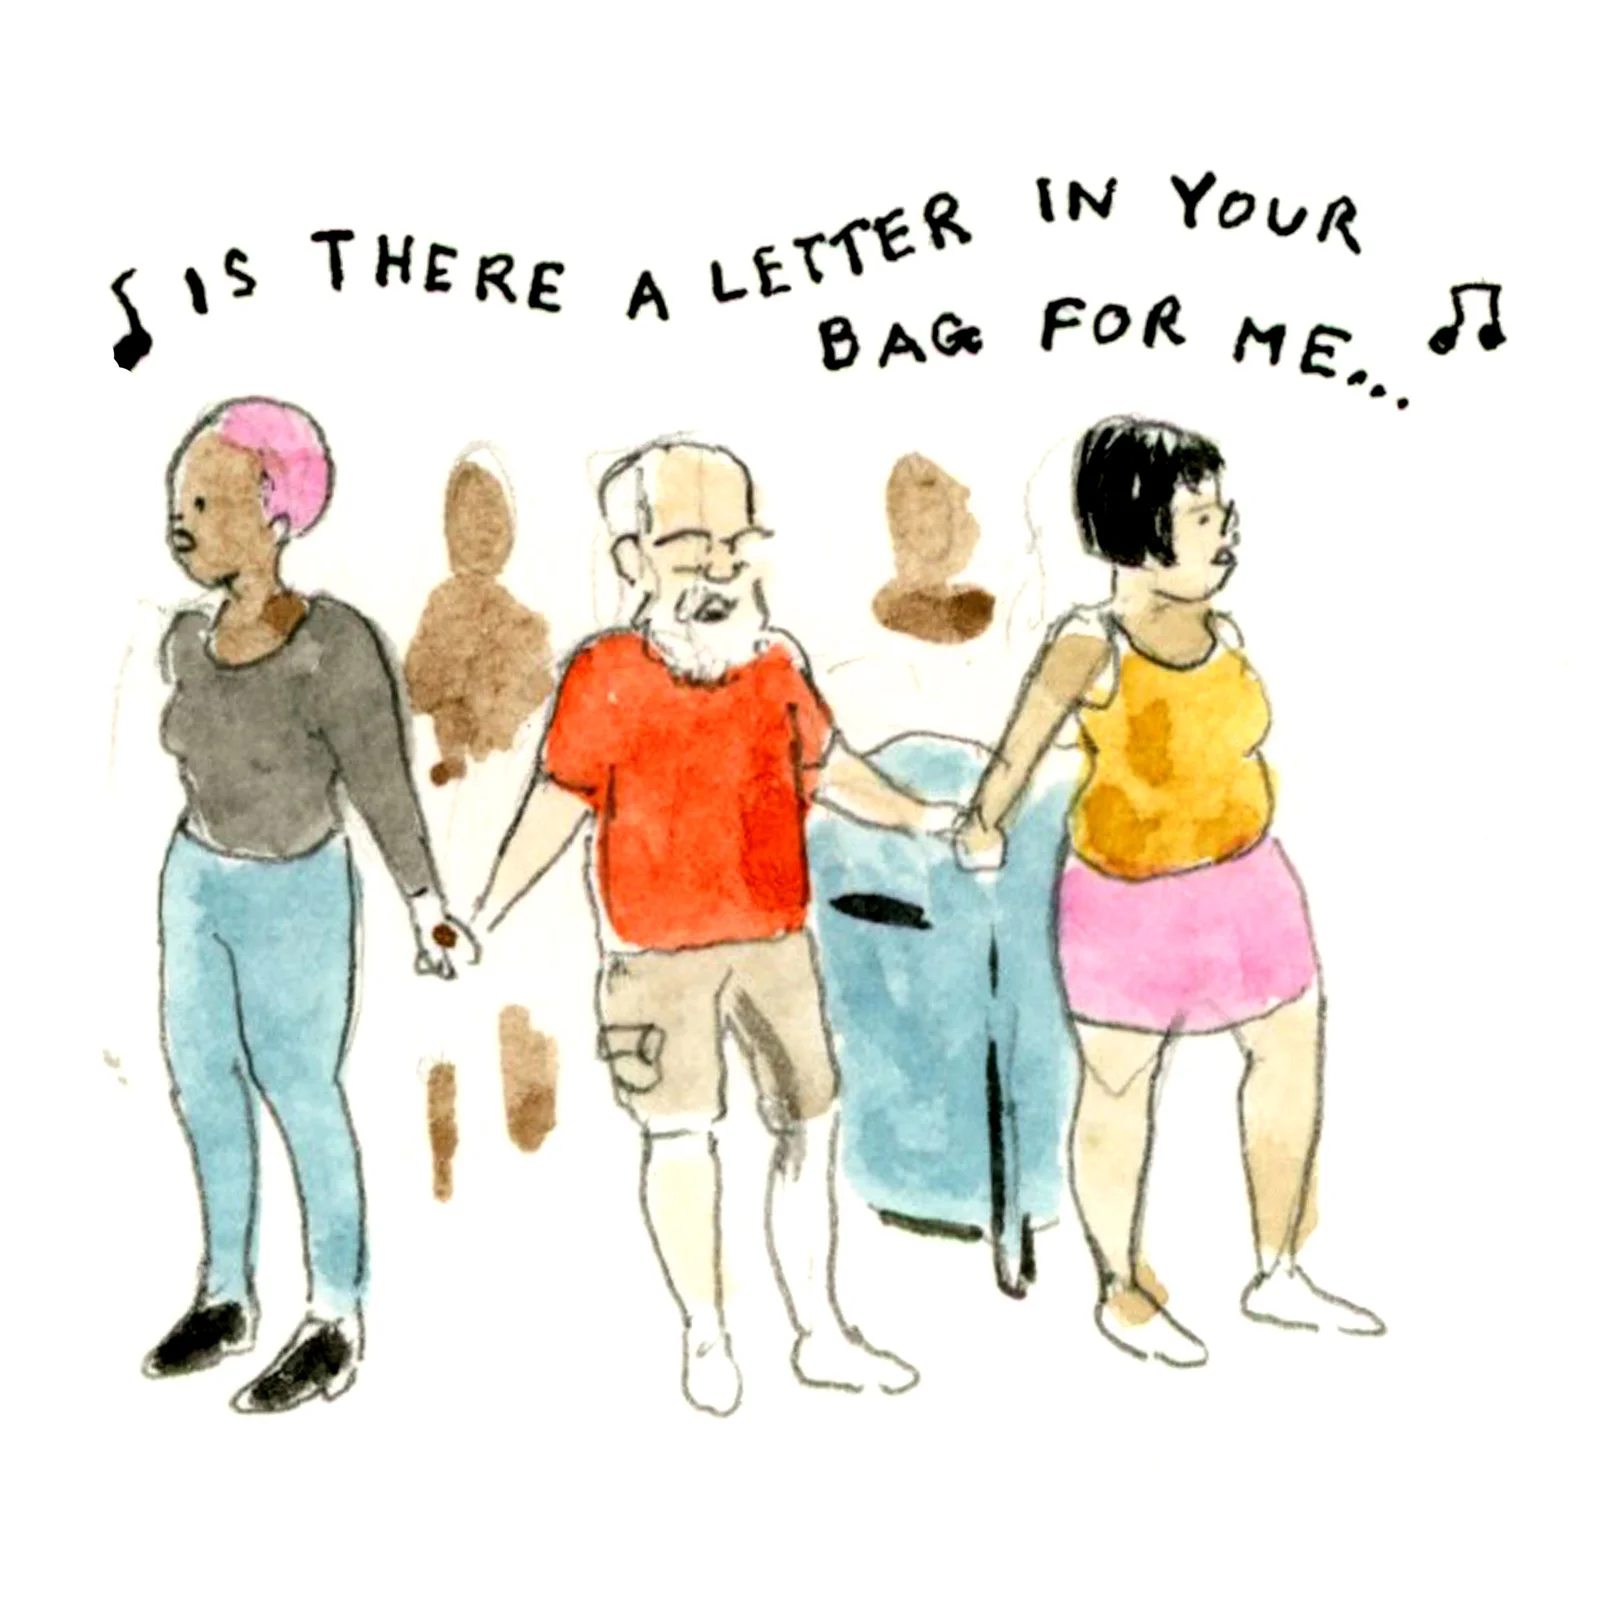 IS THERE A LETTER IN YOUR
BAG FOR ME...